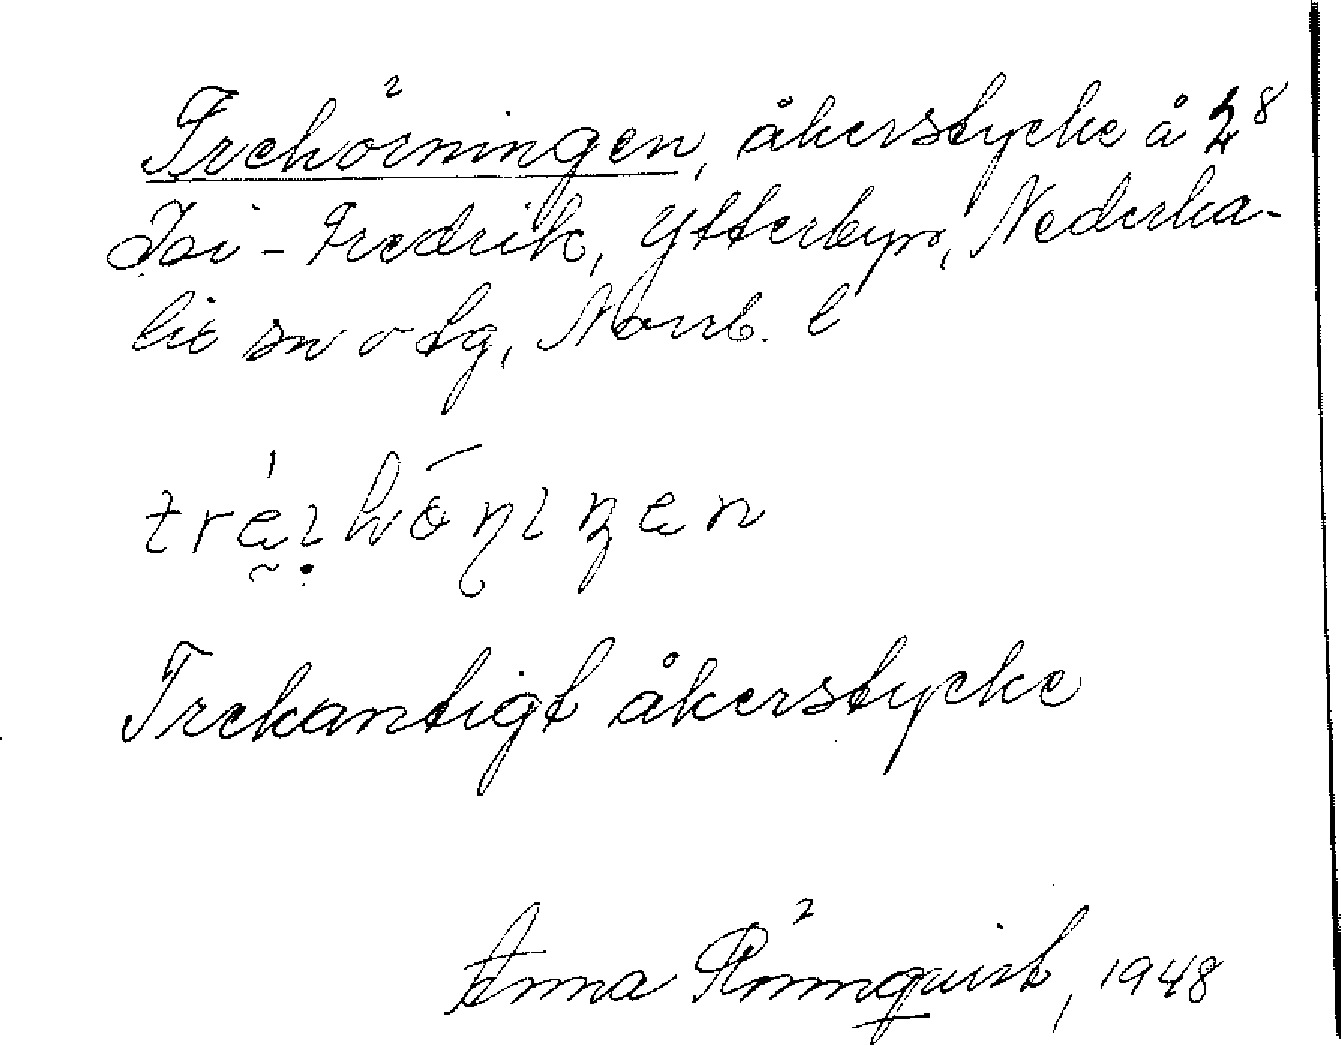 Trehörningen, åkerstycke å 2⁸
Isi-Fredrik, Ytterbyn, Nederka-
lix sn o tg, Norrb. l
Trekantigt åkerstycke
Anna Rönnquist, 1948